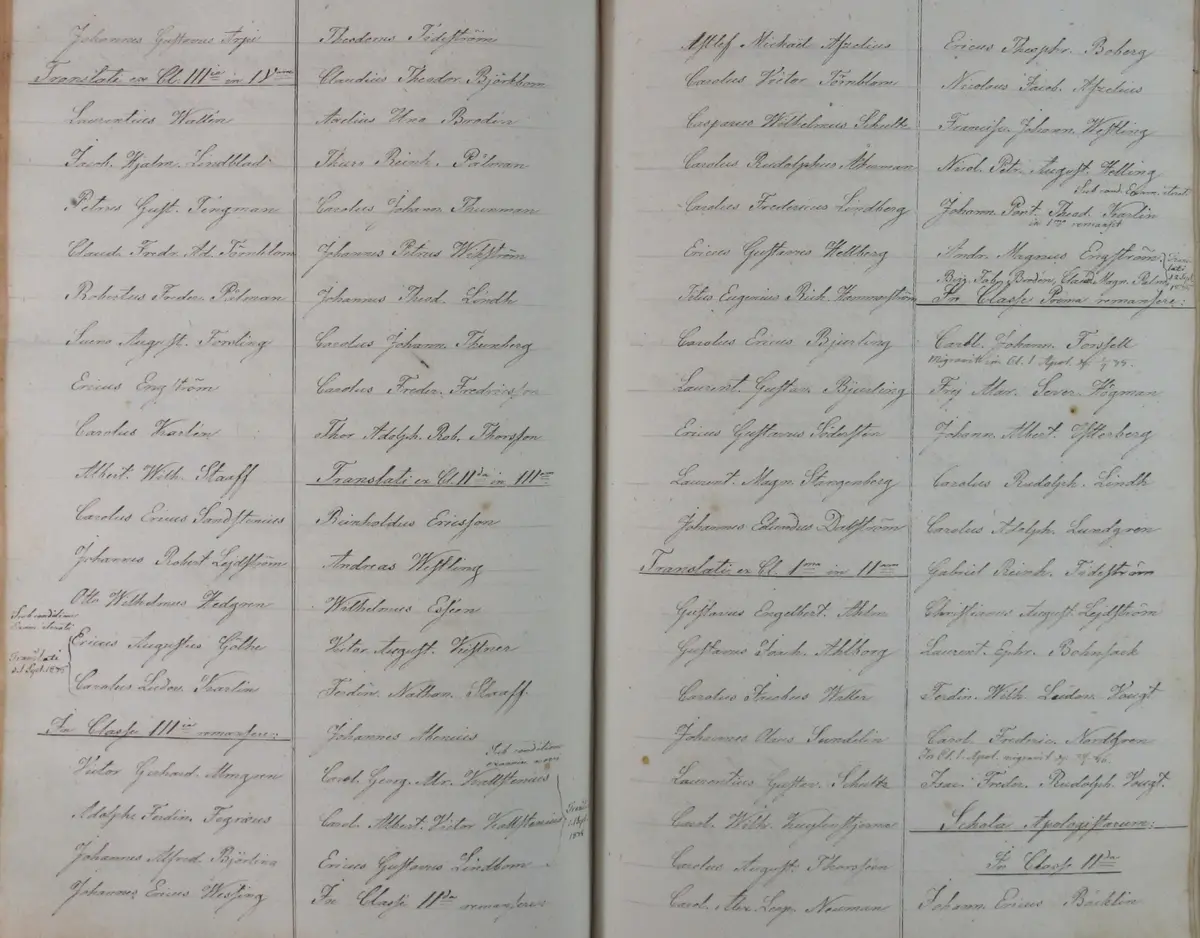 Johannes Gustavus Arpi
Translati ex Cl. IIIia in IVam
Laurentius Wallin
Jacob. Hjalm. Lindblad
Petrus Gust. Tengman
Claud. Fredr. Ad. Törnblom
Robertus Feder. Pålman
Sueno August. Forsling
Ericus Engström
Carolus Karlin
Albert. Wilh. Staaff
Carolus Ericus Sandstenius
Johannes Robert Lejdström
Otto Wilhelmus Hedgren
Sub conditione
Ericus Augustus Göthe
Translati
d. 1 Sept. 1845
Carolus Ludov. Karlin
In Classe IIIia remansere:
Victor Gerhard Almgren
Adolphe Ferdin. Fegræus
Johannes Alfred. Björling
Johannes Ericus Wessing
Theodorus Tideström
Claudius Theodor. Björkbom
Axelius Uno Brodin
Thure Reinh. Pålman
Carolus Johann. Thunman
Johannes Petrus Wikström
Johannes Theod. Lindh
Carolus Johann. Thunberg
Carolus Freder. Fredriksson
Thor Adolph. Rob. Thorsson
Translati ex Cl. IIda in IIIam
Reinholdus Ericsson
Andreas Westling
Wilhelmus Esseen
Victor August. Kistner
Ferdin. Nathan. Staaff
Johannes Athenius
Sub conditione
Carol. Georg. Alex. Kallstenius
Carol. Albert. Victor Kallstenius
Ericus Gustavus Lindbom
In Classe IIda remansere:
Astlef Michaël Afzelius
Carolus Victor Törnblom
Casparus Wilhelmus Schultz
Carolus Rudolphus Åkerman
Carolus Fredericus Lindberg
Ericus Gustavus Hellberg
Titus Eugenius Rich. Hammarström
Carolus Ericus Bjerling
Laurent. Gustav. Bjerling
Ericus Gustavus Södersten
Laurent. Magn. Stangenberg
Johannes Edvardus Dallström
Translati ex Cl. Ima in IIam
Gustavus Engelbert. Ahlm
Gustavus Isach. Ahlborg
Carolus Welter
Johannes Olaus Sundelin
Laurentius Gustav. Schultz
Carol. Wilh. Kuylenstjerna
Carolus August. Thorsseen
Carol. Alex. Leop. Neuman
Ericus Theophr. Boberg
Nicolaus Jacob. Afzelius
Francisc. Johann. Westling
Nicol. Petr. August. Helling
Johann. Pont. Thead. Karlin
in Ima remansit
Andr. Magnus Engström
In Classe Prima remansere:
Carol. Johann. Forssell
migravit in Cl. I Apol.
Frej Alex. Sever. Högman
Johann. Albert. Osterberg
Carolus Rudolph. Lindh
Carolus Adolph. Lundgren
Gabriel Reinh. Tideström
Christianus August. Lejdström
Laurent. Ephr. Bohnsack
Ferdin. Wilh. Ludov. Vougt
Carol. Frederic. Nordgren
In Cl. I. Apol. migravit
Isac. Freder. Rudolph. Vougt.
Scholæ Apologistarum:
In Classe IIda
Johann. Ericus Bäcklin